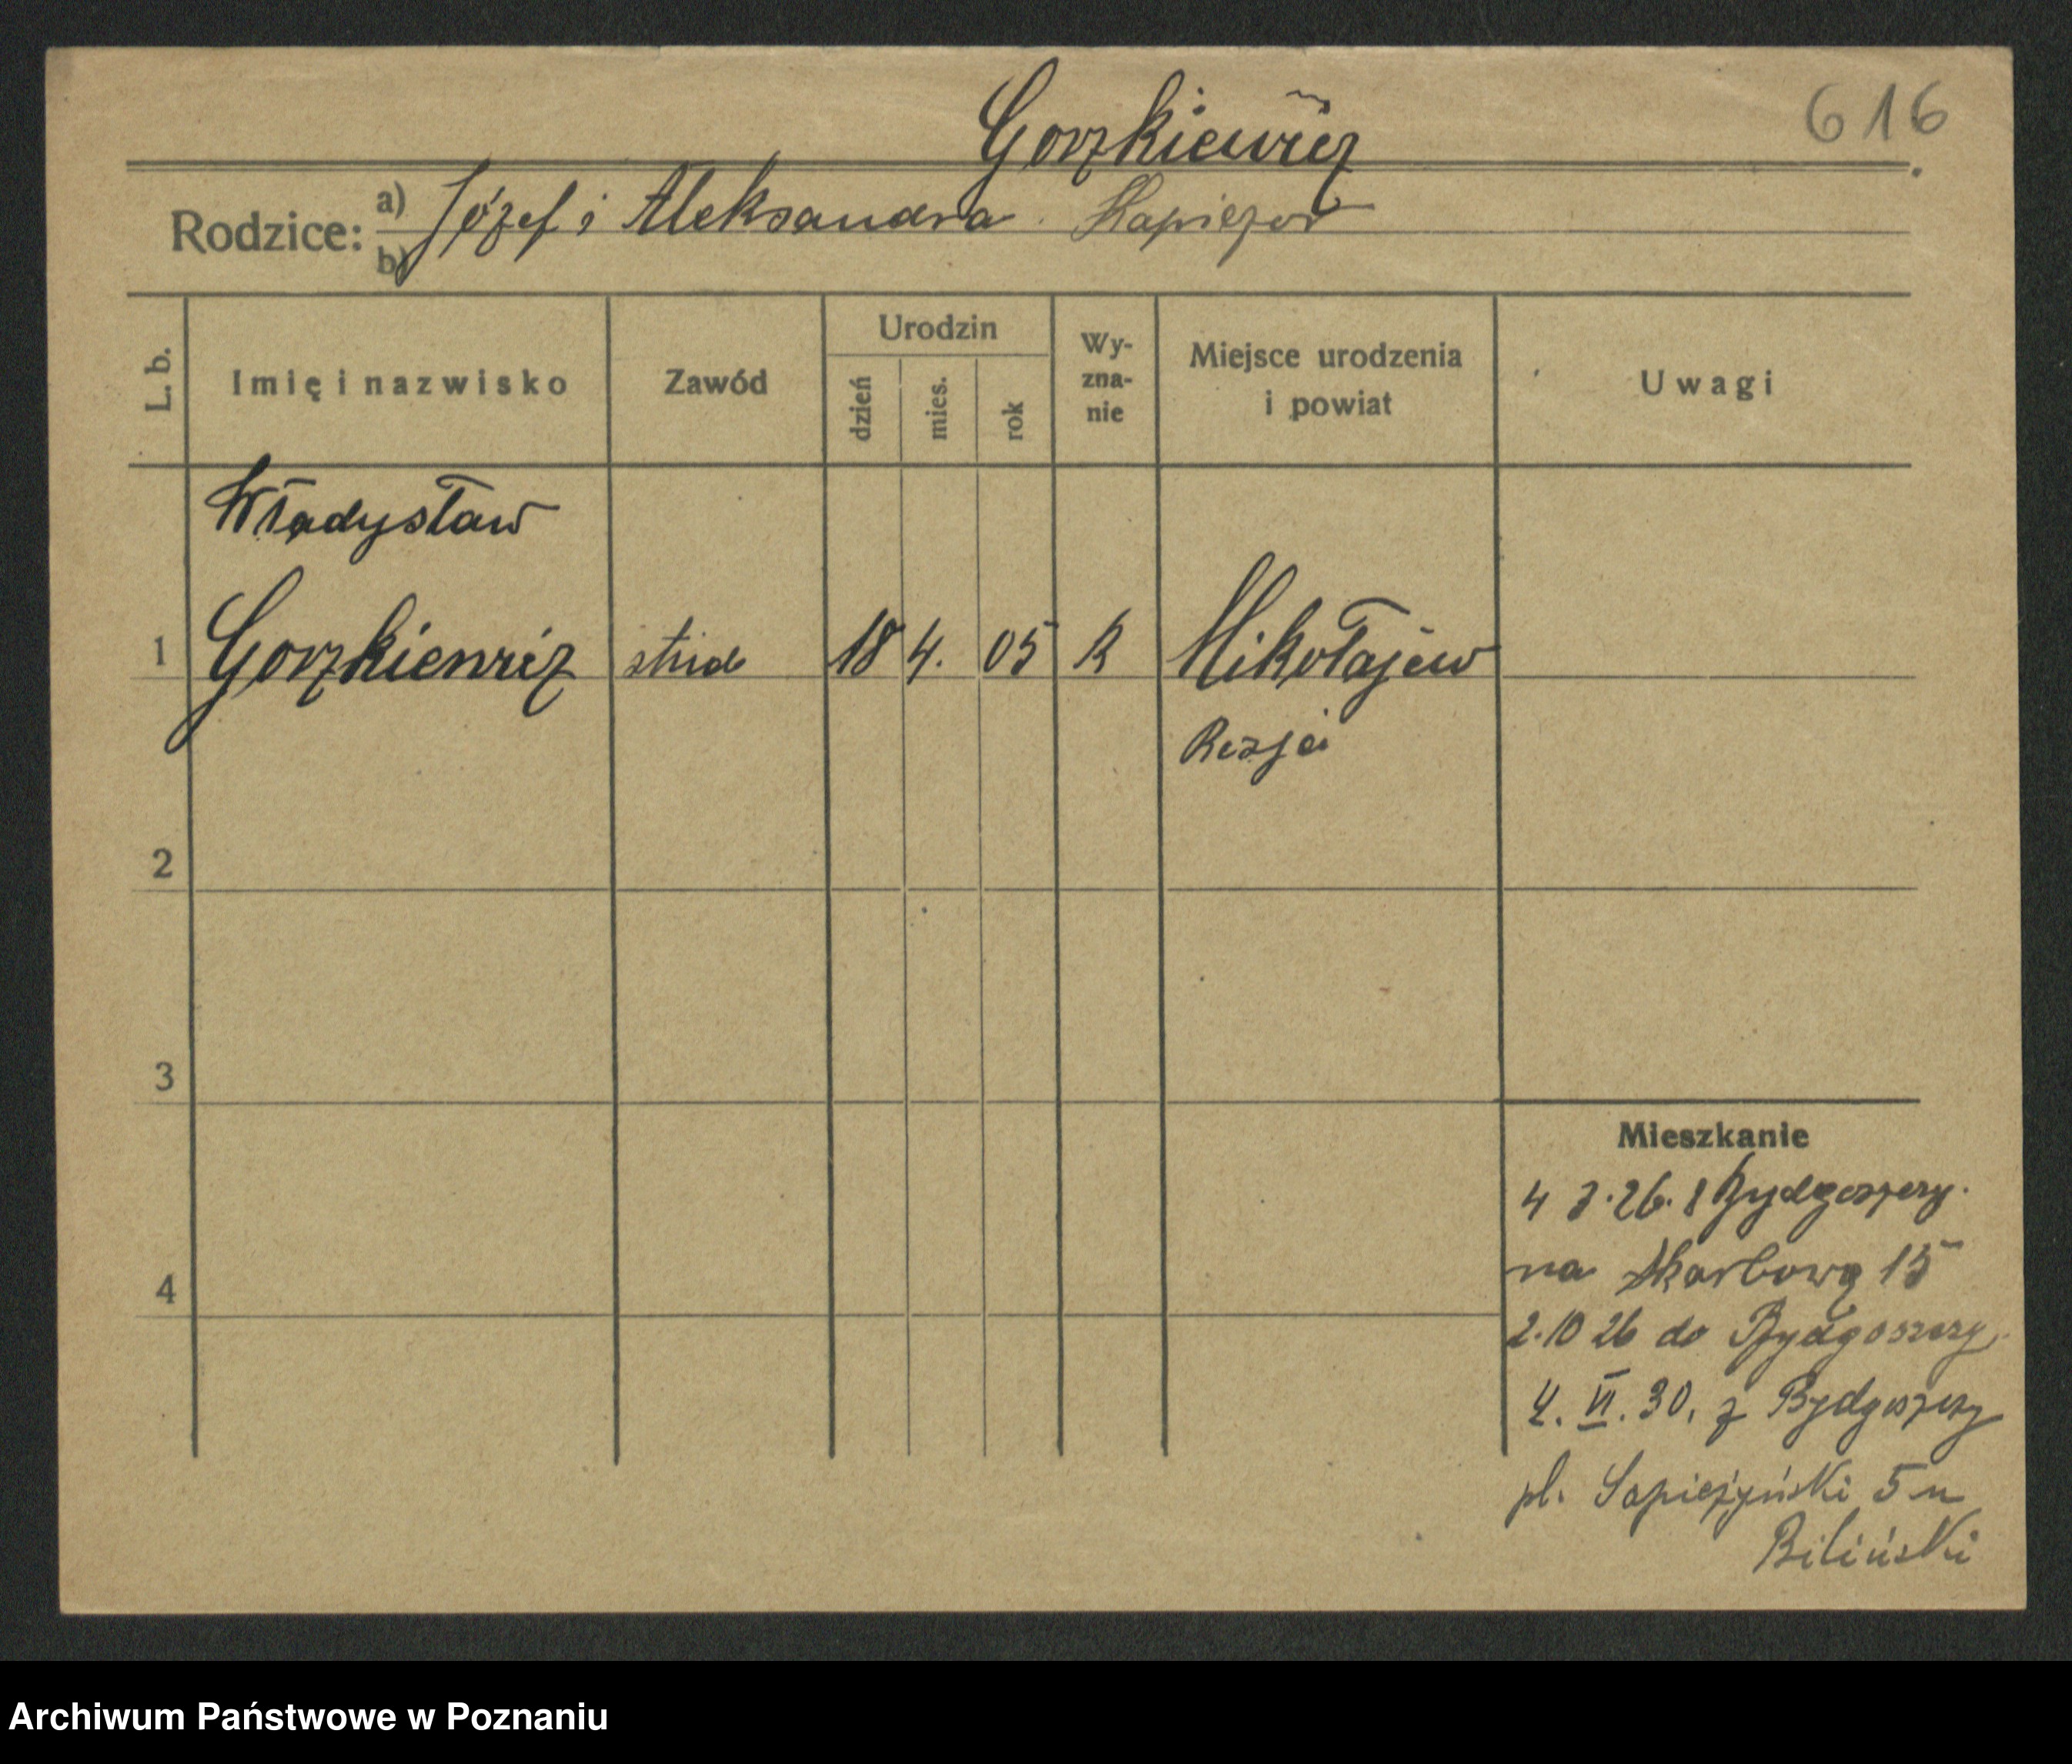 Gorzkiewicz
616
Rodzice: a) Józef i Aleksandra
b)
L. b.
Imię i nazwisko
Zawód
Urodzin
dzień
mies.
rok
Wy-
zna-
nie
Miejsce urodzenia
i powiat
Uwagi
Władysław
1 Gorzkiewicz stud 18 4. 05 R Mikołajew
Rosja
2
3
4
Mieszkanie
4 3.26. z Bydgoszczy.
na Skarbową 15
2.10 26 do Bydgoszczy.
4. VI. 30. z Bydgoszczy
pl. Sapieżyński 5 u
Biliński
Archiwum Państwowe w Poznaniu